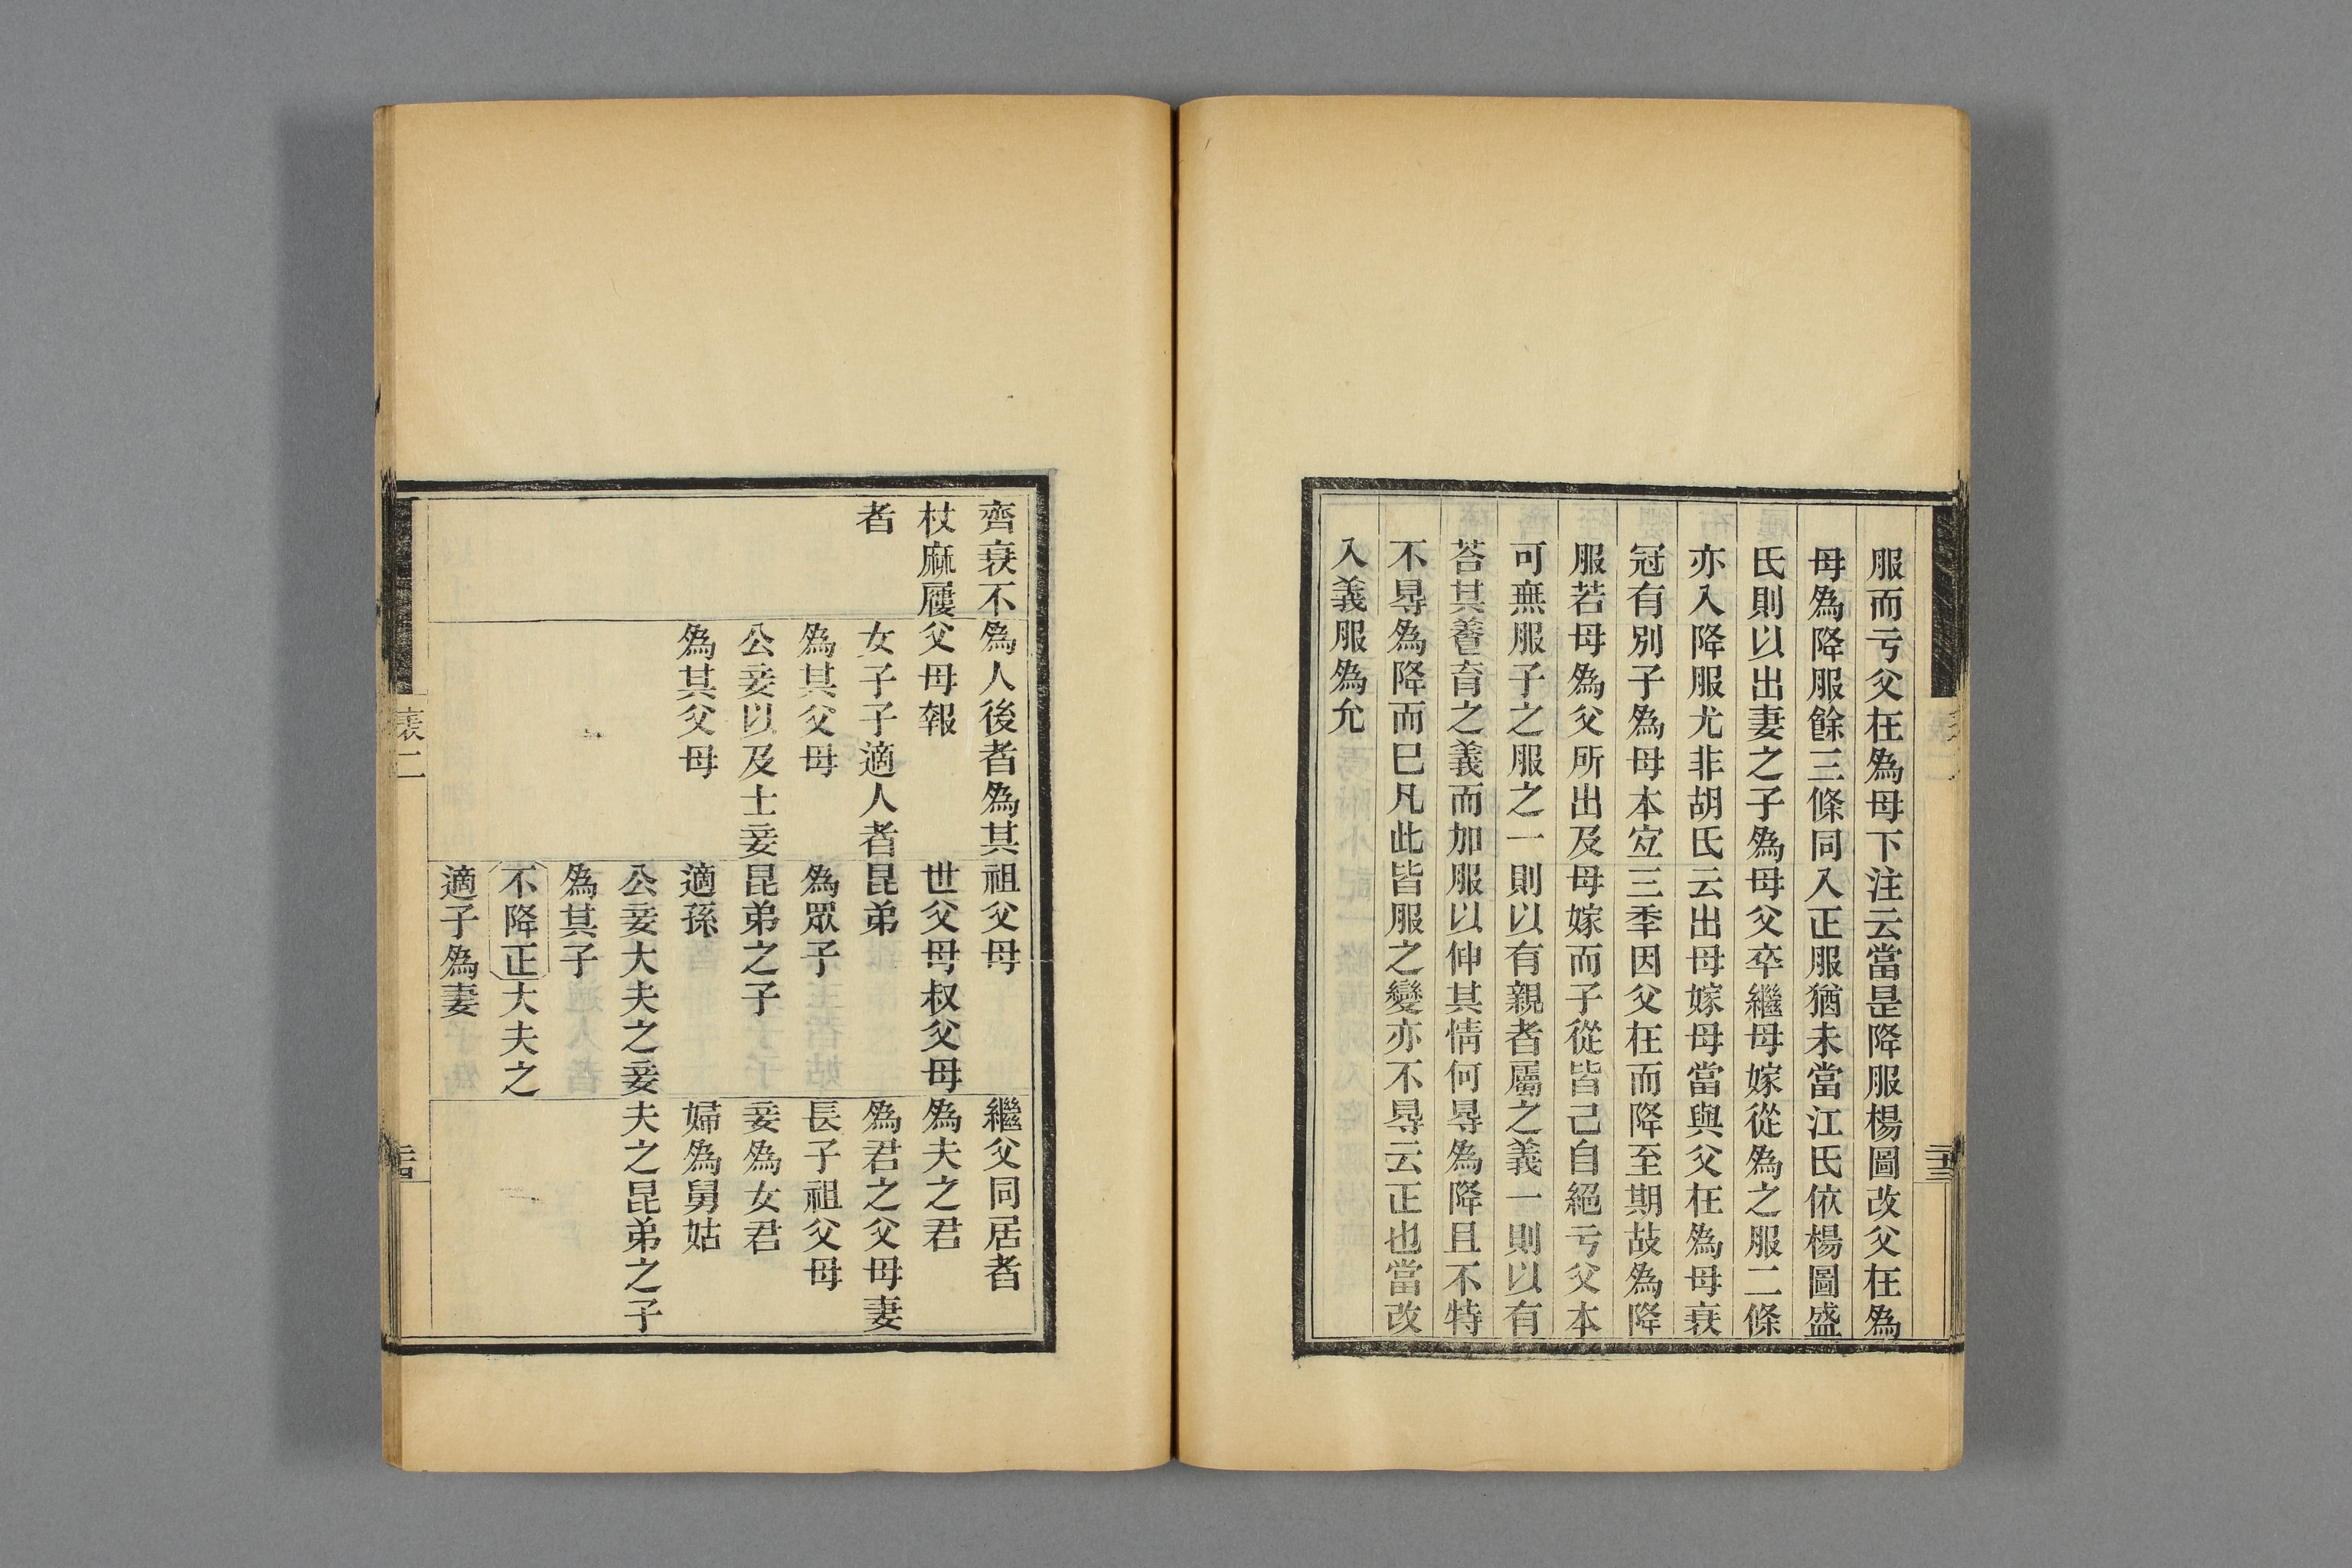 服而亏父在爲母下注云當昰降服楊圖改父在爲
母爲降服餘三條同入正服猶未當江氏依楊圖盛
氏則以出妻之子爲母父卒繼母嫁從爲之服二條
亦入降服尤非胡氏云出母嫁母當與父在爲母衰
冠有別子爲母本宐三秊因父在而降至期故爲降
服若母爲父所出及母嫁而子從皆己自絕亏父本
可無服子之服之一則以有親者屬之義一則以有
荅其養育之義而加服以伸其情何㝵爲降且不特
不㝵爲降而已凡此皆服之變亦不㝵云正也當改
入義服爲允
二十三
齊衰不
杖麻屨
者
爲人後者爲其
父母報
女子子適人者
爲其父母
公妾以及士妾
爲其父母
祖父母
世父母叔父母
昆弟
爲眾子
昆弟之子
適孫
公妾大夫之妾
爲其子
不降正大夫之
適子爲妻
繼父同居者
爲夫之君
爲君之父母妻
長子祖父母
妾爲女君
婦爲舅姑
夫之昆弟之子
表二